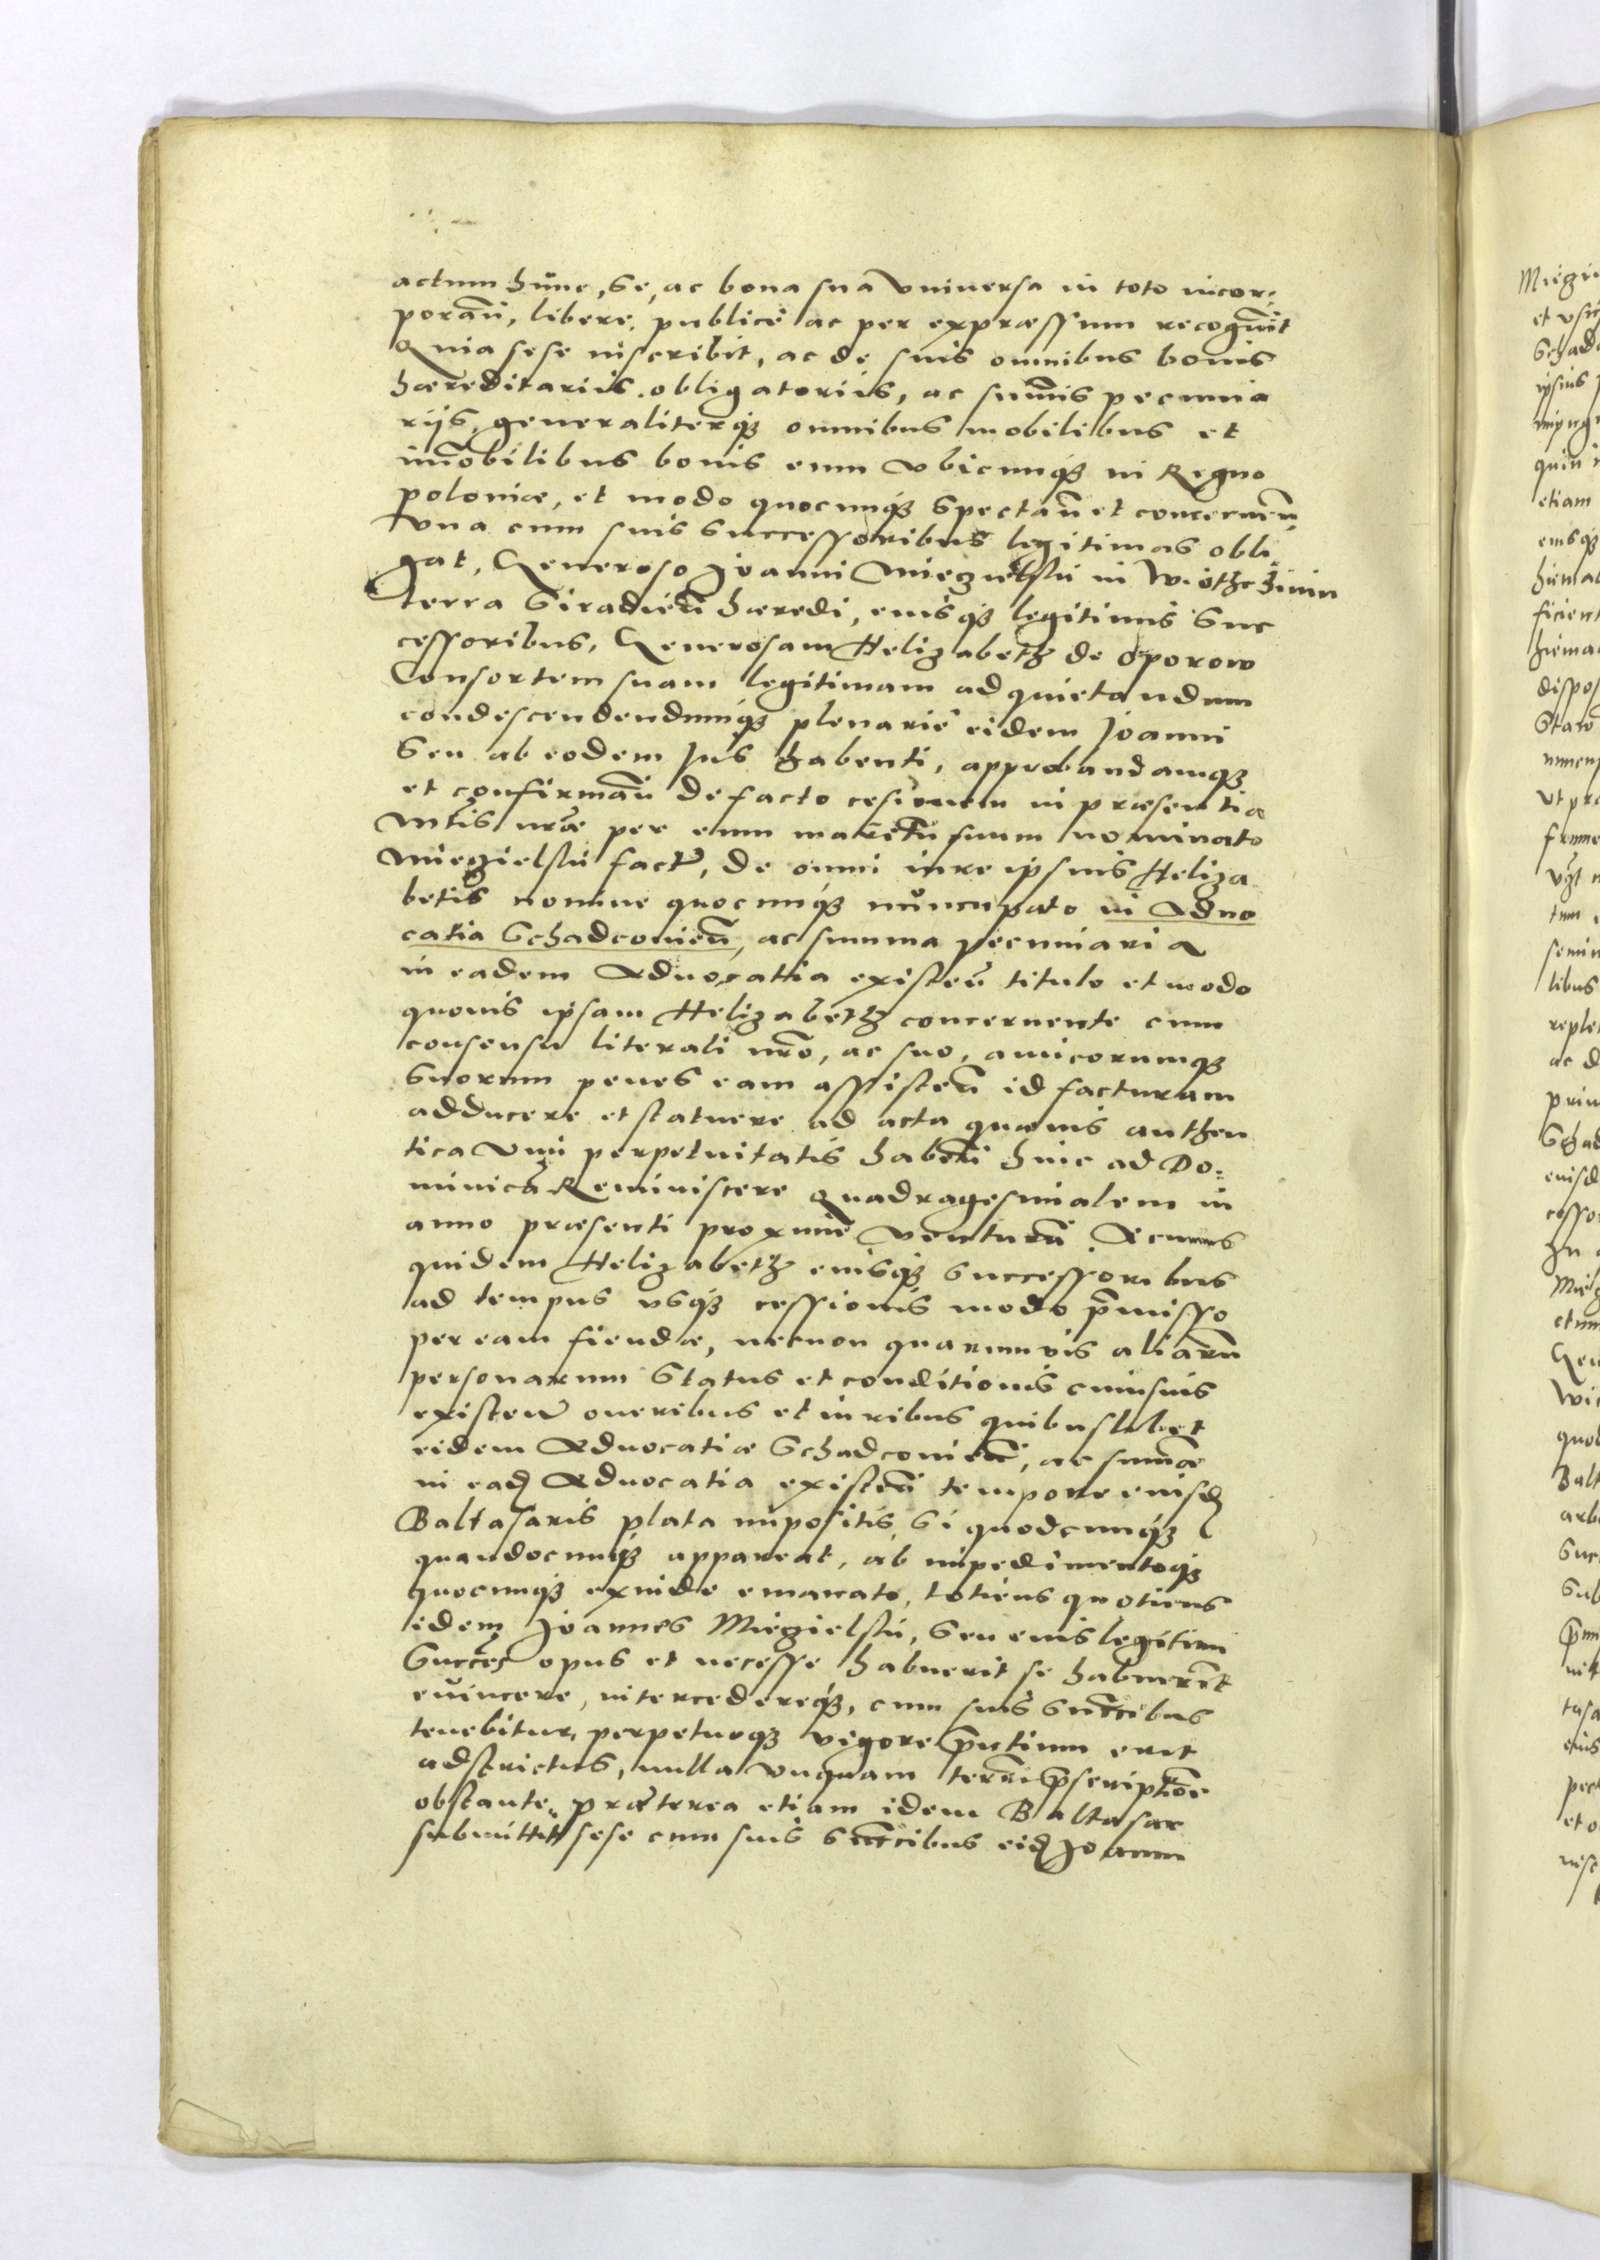 actum hunc, se, ac bona sua universa in toto incor-
poran̄, libere, publice ac per expræssum recognovit
Quia sese inscribit, ac de suis omnibus bonis
hæreditariis obligatoriis, ac sum̄is pecunia
rijs, generaliterq3 omnibus mobilibus et
im̄obilibus bonis eum ubicunq3 in Regno
poloniæ, et modo quocunq3 spectan̄ et concernen̄
una cum suis successoribus legitimis obli
gat, Generoso Joanni Miegzielski in
terra Siradien̄ hæredi, eiusq3 legitimis suc
cessoribus, Generosam Helizabeth de Oporow
Consortem suam legitimam ad quietandum
condescendendumq3 plenarie eidem Joanni
seu ab eodem jus habenti, approbandamq3
et confirman̄ de facto cesionem in præsentia
nr̄æ per eum maritū suum nominato
Miegzielski factā, de omni iure ipsius Heliza
betis nomine quocunq3 nuncupato in Advo
catia Schadcovien̄, ac summa pecuniaria
in eadem Advocattia existen̄ titulo et modo
quovis ipsam Helizabeth concernente cum
consensu literali nr̄o, ac suo, amicorumq3
suorum penes eam assisten̄ id facturam
adducere et statuere ad acta quævis authen
tica vim perpetuitatis haben̄ hinc ad Do-
minicā Reminiscere Quadragesimalem in
anno præsenti proxime venturā. A cuius
quidem Helizabeth eiusq3 successoribus
ad tempus usq3 cessionis modo p̄misso
per eam fiendæ, necnon quarumvis aliarū
personarum status et conditionis cuiusvis
existen̄ oneribus et iuribus quibuslibet
eidem Advocatiæ Schadcovien̄, ac sum̄æ
in ead Advocatia existen̄ tempore eiusd
Baltasaris plata impositis, si quodcunq3
quandocunq3 appareat, ab impedimentoq3
quocunq3 exinde emanato, totiens quotiens
idem Joannes Miegzielski, seu eius legitimi
Succ̄es opus et necesse habuerit se habuerīt
evincere, intercedereq3, cum suis succ̄ibus
tenebitur, perpetuoq3 vigore p̄ntium erit
adstrictus, nulla unquam terr̄i p̄scriptiōe
obstante. Præterea etiam idem Baltasar
submittit sese cum suis succ̄ibus eid Joanni